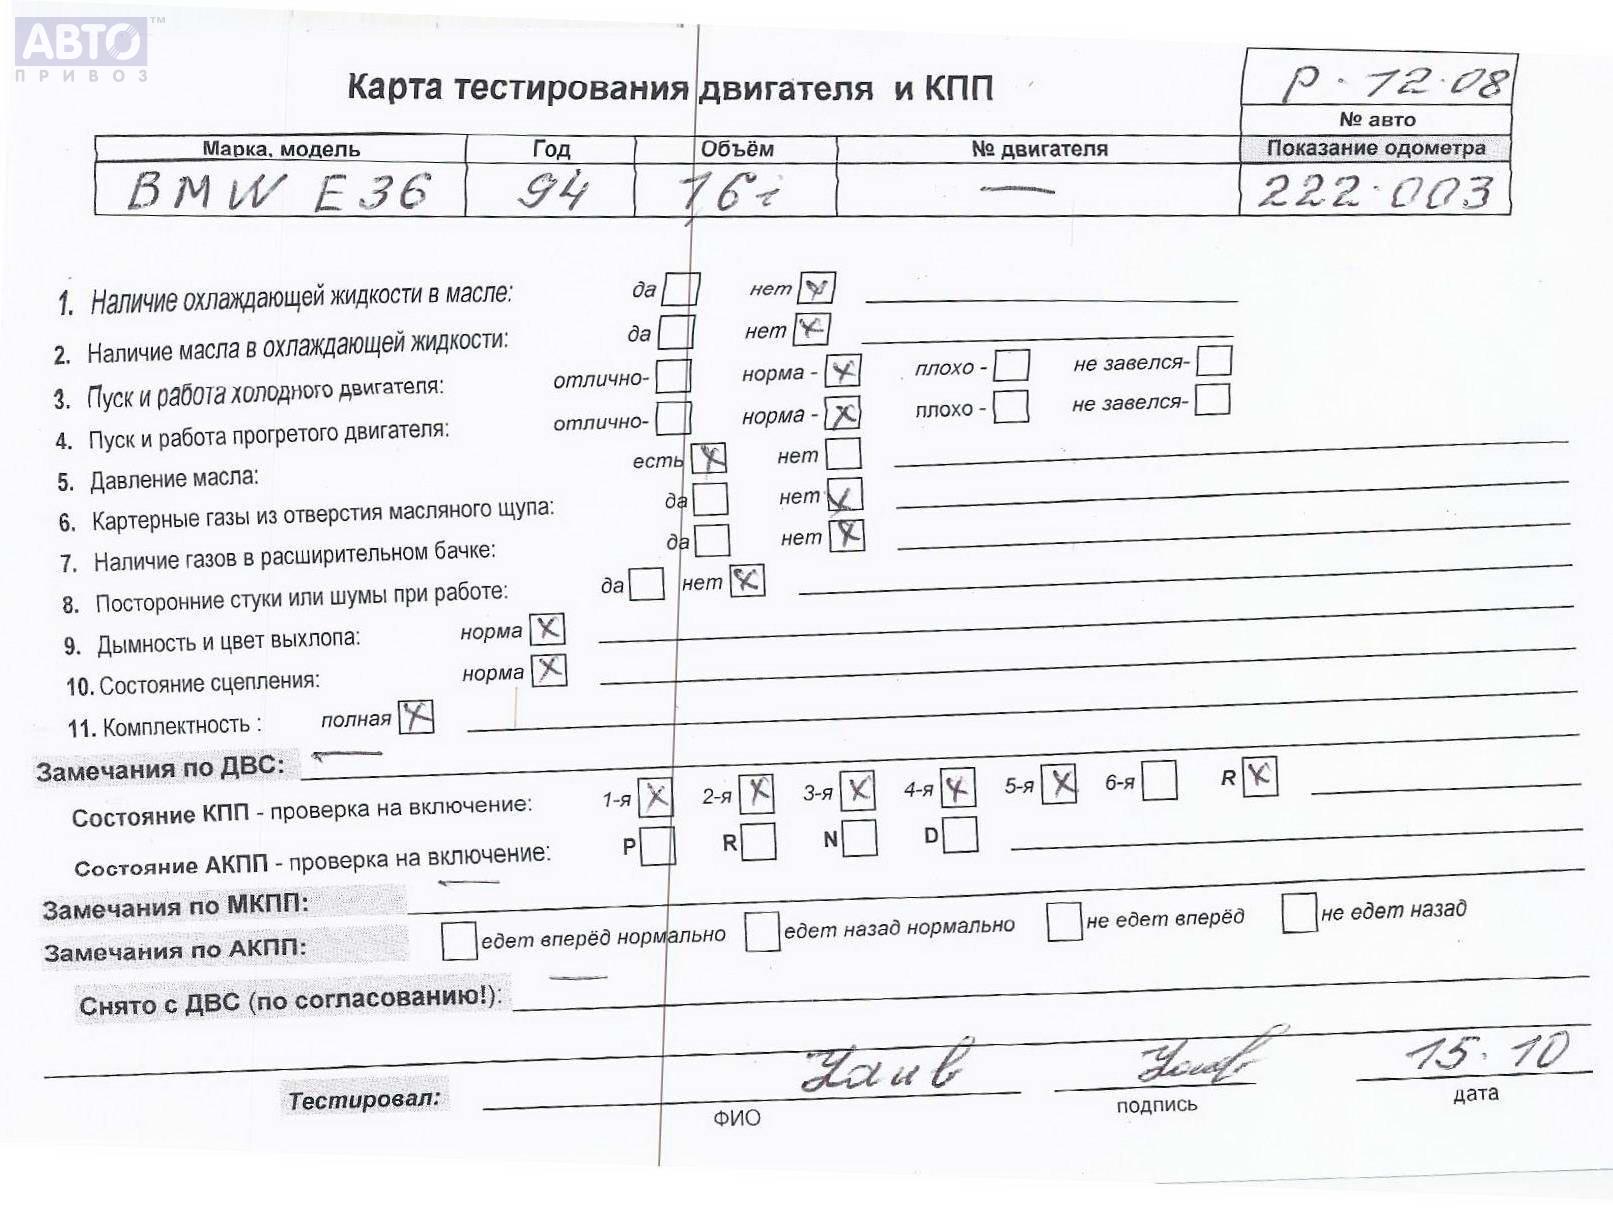 АВТО™
ПРИВОЗ
Карта тестирования двигателя и КПП
Р-12-08
№ авто
Марка, модель Год Объём № двигателя Показание одометра
BMW E36 94 16i — 222.003
1. Наличие охлаждающей жидкости в масле: да нет
2. Наличие масла в охлаждающей жидкости: да нет
3. Пуск и работа холодного двигателя: отлично- норма - плохо - не завелся-
4. Пуск и работа прогретого двигателя: отлично- норма - плохо - не завелся-
5. Давление масла: есть нет
6. Картерные газы из отверстия масляного щупа: да нет
7. Наличие газов в расширительном бачке: да нет
8. Посторонние стуки или шумы при работе: да нет
9. Дымность и цвет выхлопа: норма
10. Состояние сцепления: норма
11. Комплектность : полная
Замечания по ДВС: —
Состояние КПП - проверка на включение: 1-я 2-я 3-я 4-я 5-я 6-я R
Состояние АКПП - проверка на включение: P R N D
Замечания по МКПП: —
Замечания по АКПП: едет вперёд нормально едет назад нормально не едет вперёд не едет назад
Снято с ДВС (по согласованию!): —
Тестировал: 15.10
ФИО подпись дата